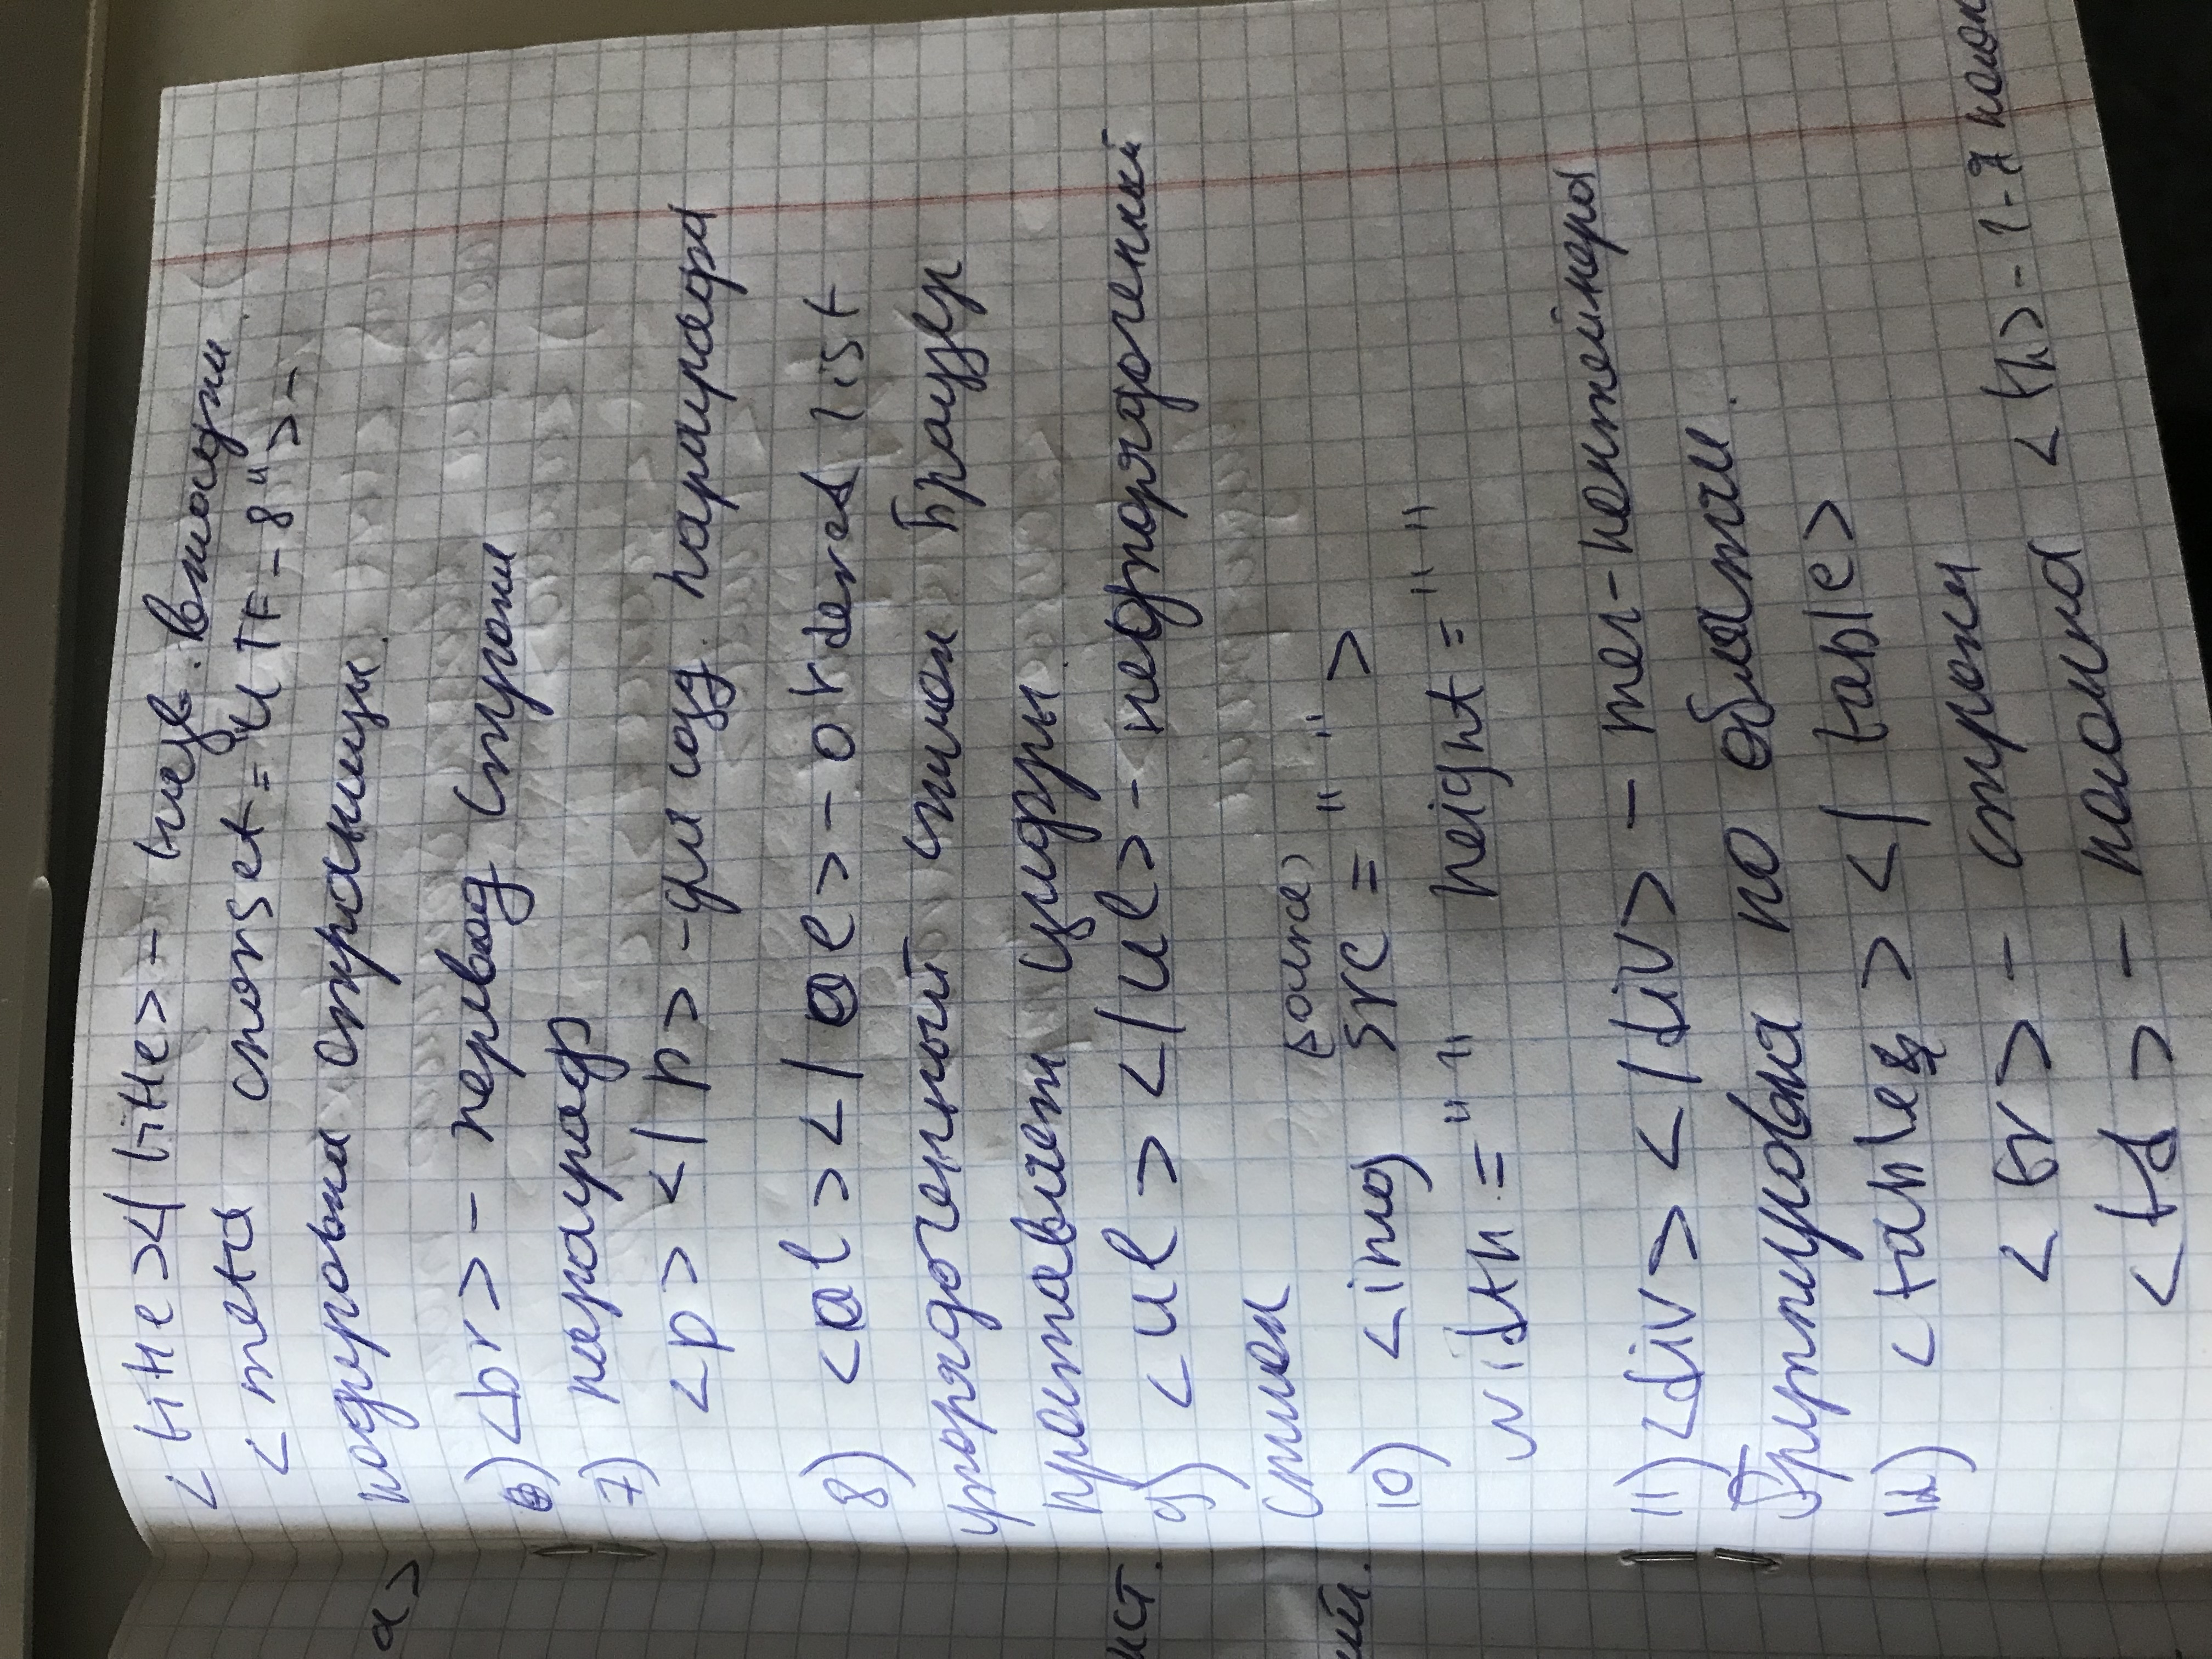 <title></title> - назв. вкладки.
<meta charset="UTF-8">-
кодировка страницы.
a>
6) <br> - перевод строки
7) параграф
<p> </p> - для созд. параграфа
8) <ol></ol> - ordered list
упорядоченный список Браузер
проставляет цифры.
ист.
9) <ul></ul> - неупорядоченный
список
(source)
10) <img src = " ">
width = " " height = " "
11) <div></div> - тег-контейнера
Группировка по областям.
12) <table></table>
<tr> - строки
<td> - колонка <th> - 1-я колон